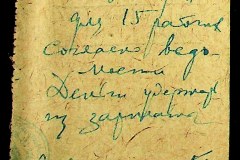 для 15 рабочих
согласно ведо-
мости
Деньги удержать
из зарплаты